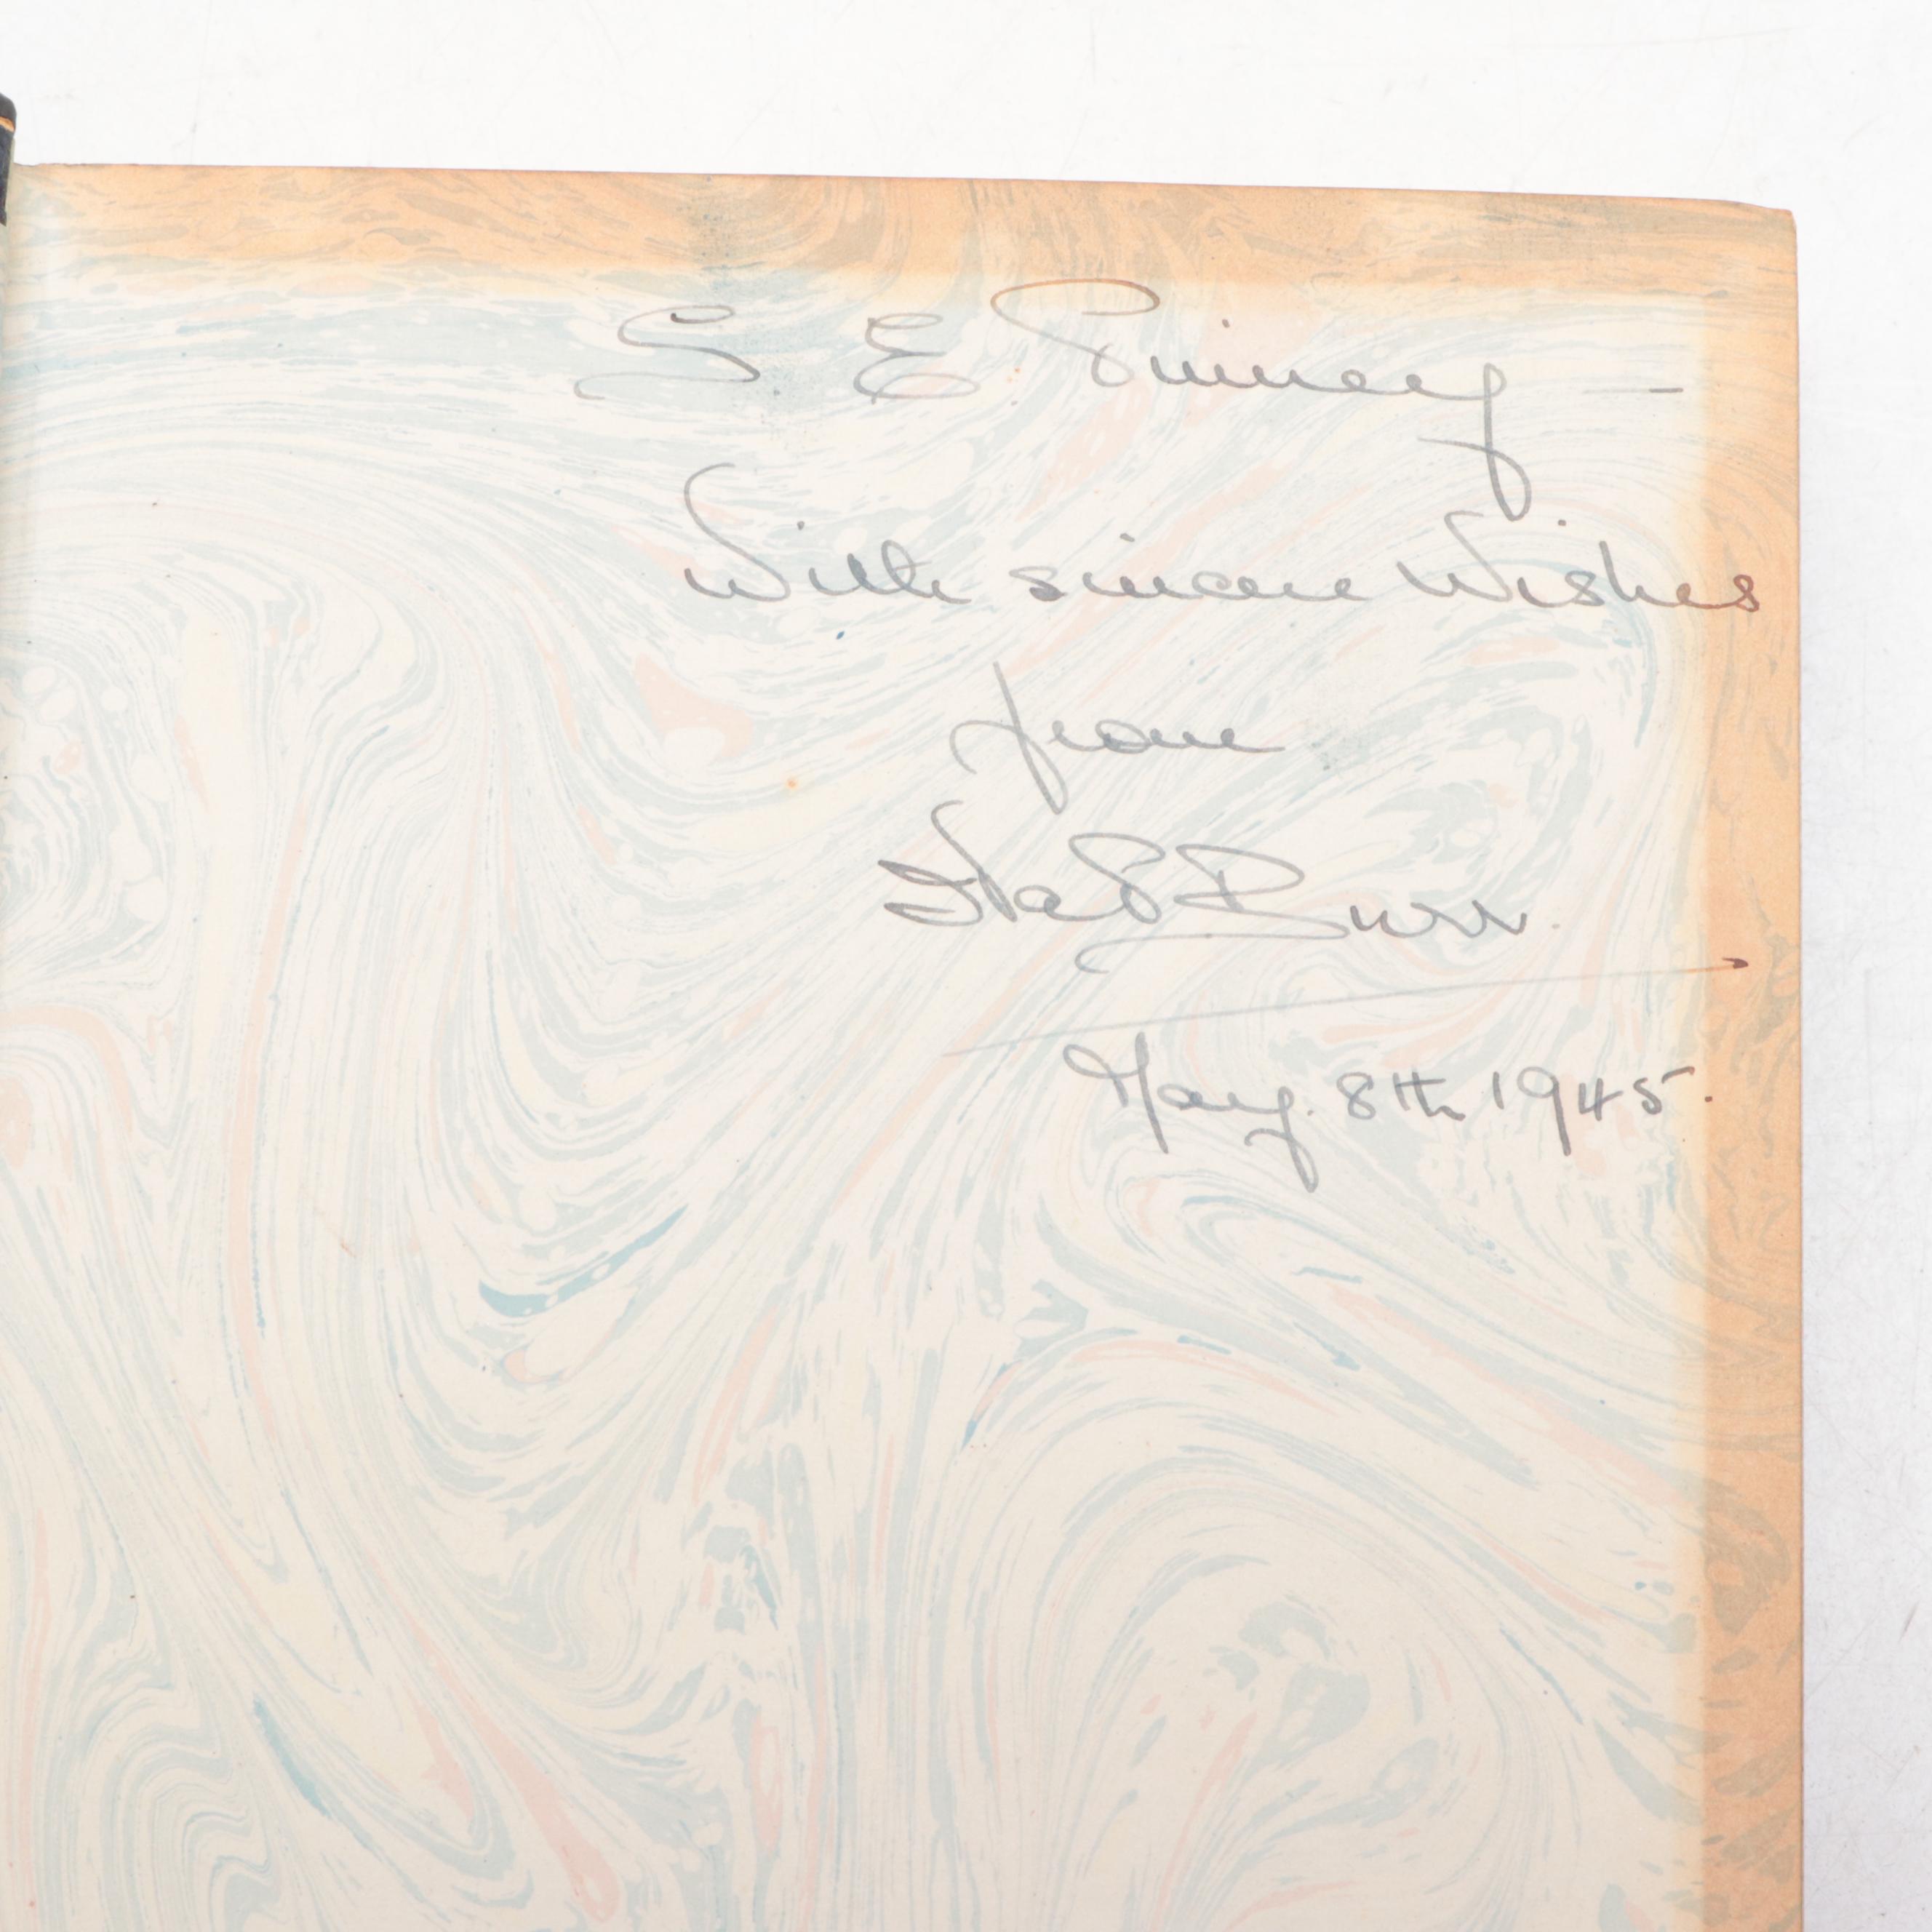 S. E
With sincere Wishes
from
Burr.
May. 8th 1945.